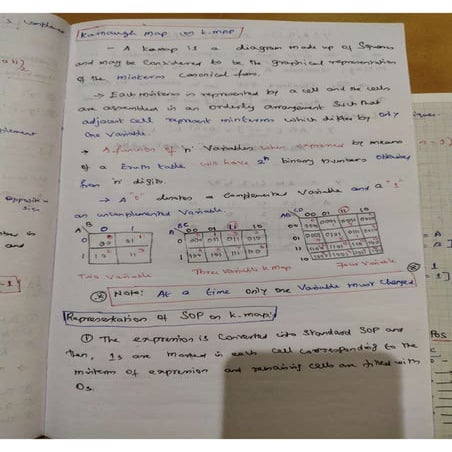 Karnaugh Map or k-map
- A kmap is a diagram made up of Squares
and may be Considered to be the graphical representation
of the minterm canonical form.
→ Each minterm is represented by a cell and the cells
are assembled in an orderly arrangement Such that
adjacent cell represent minterms which differ by only
one Variable.
→ A function of 'n' Variables when expressed by means
of a truth table will have 2ⁿ binary numbers obtained
from 'n' digits.
→ A "0" denotes a Complemented Variable and a "1"
an uncomplemented Variable.
A B 0 1
0 00 01
1 10 11
Two Variable
A BC 00 01 11 10
0 000 001 011 010
1 100 101 111 110
Three Variable k-Map
AB CD 00 01 11 10
00
01
11
10
Four Variable
Note: At a time only one Variable must changed
Representation of SOP on k-map:
① The expression is Converted into Standard SOP and
then, 1s are marked in each cell corresponding to the
minterm of expression and remaining cells are filled with
0s.